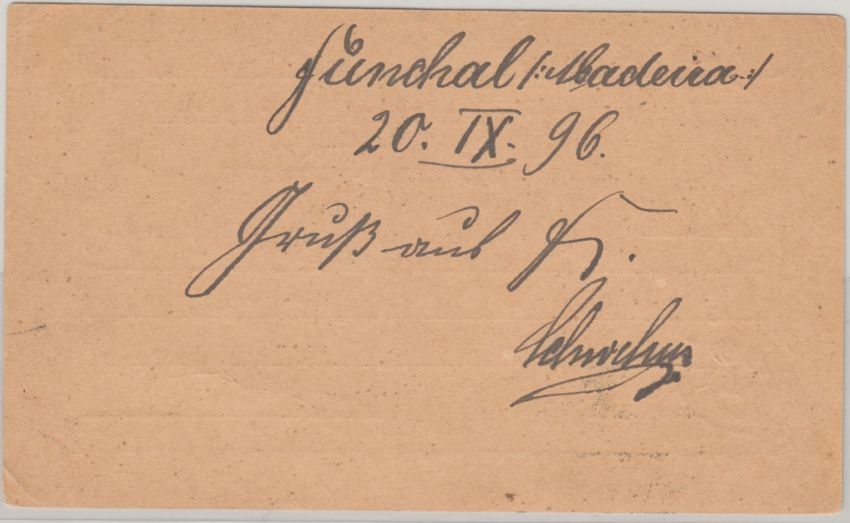 Funchal /:Madeira:/
20. IX. 96.
Gruß aus F.